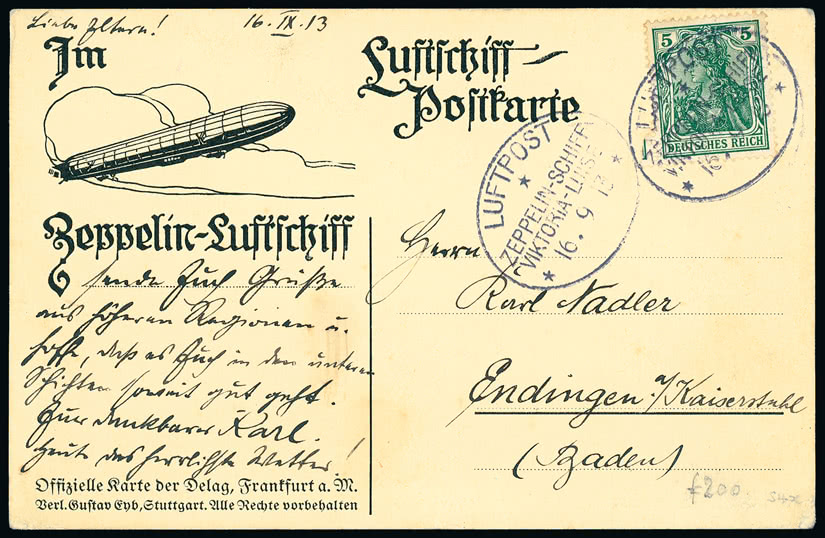 Liebe Eltern!
16. IX. 13
Im
Luftschiff-
Postkarte
5 5
DEUTSCHES REICH
LUFTPOST
ZEPPELIN-SCHIFF
"VIKTORIA-LUISE"
* 16. 9 13 *
Zeppelin-Luftschiff
sende Euch Grüße
aus höheren Regionen u.
hoffe, daß es Euch in den unteren
Schichten soweit gut geht.
Euer dankbarer Karl.
Heute das herrlichste Wetter!
Offizielle Karte der Delag, Frankfurt a. M.
Verl. Gustav Eyb, Stuttgart. Alle Rechte vorbehalten
Herrn
Karl Nadler
Endingen a/Kaiserstuhl
(Baden)
£200